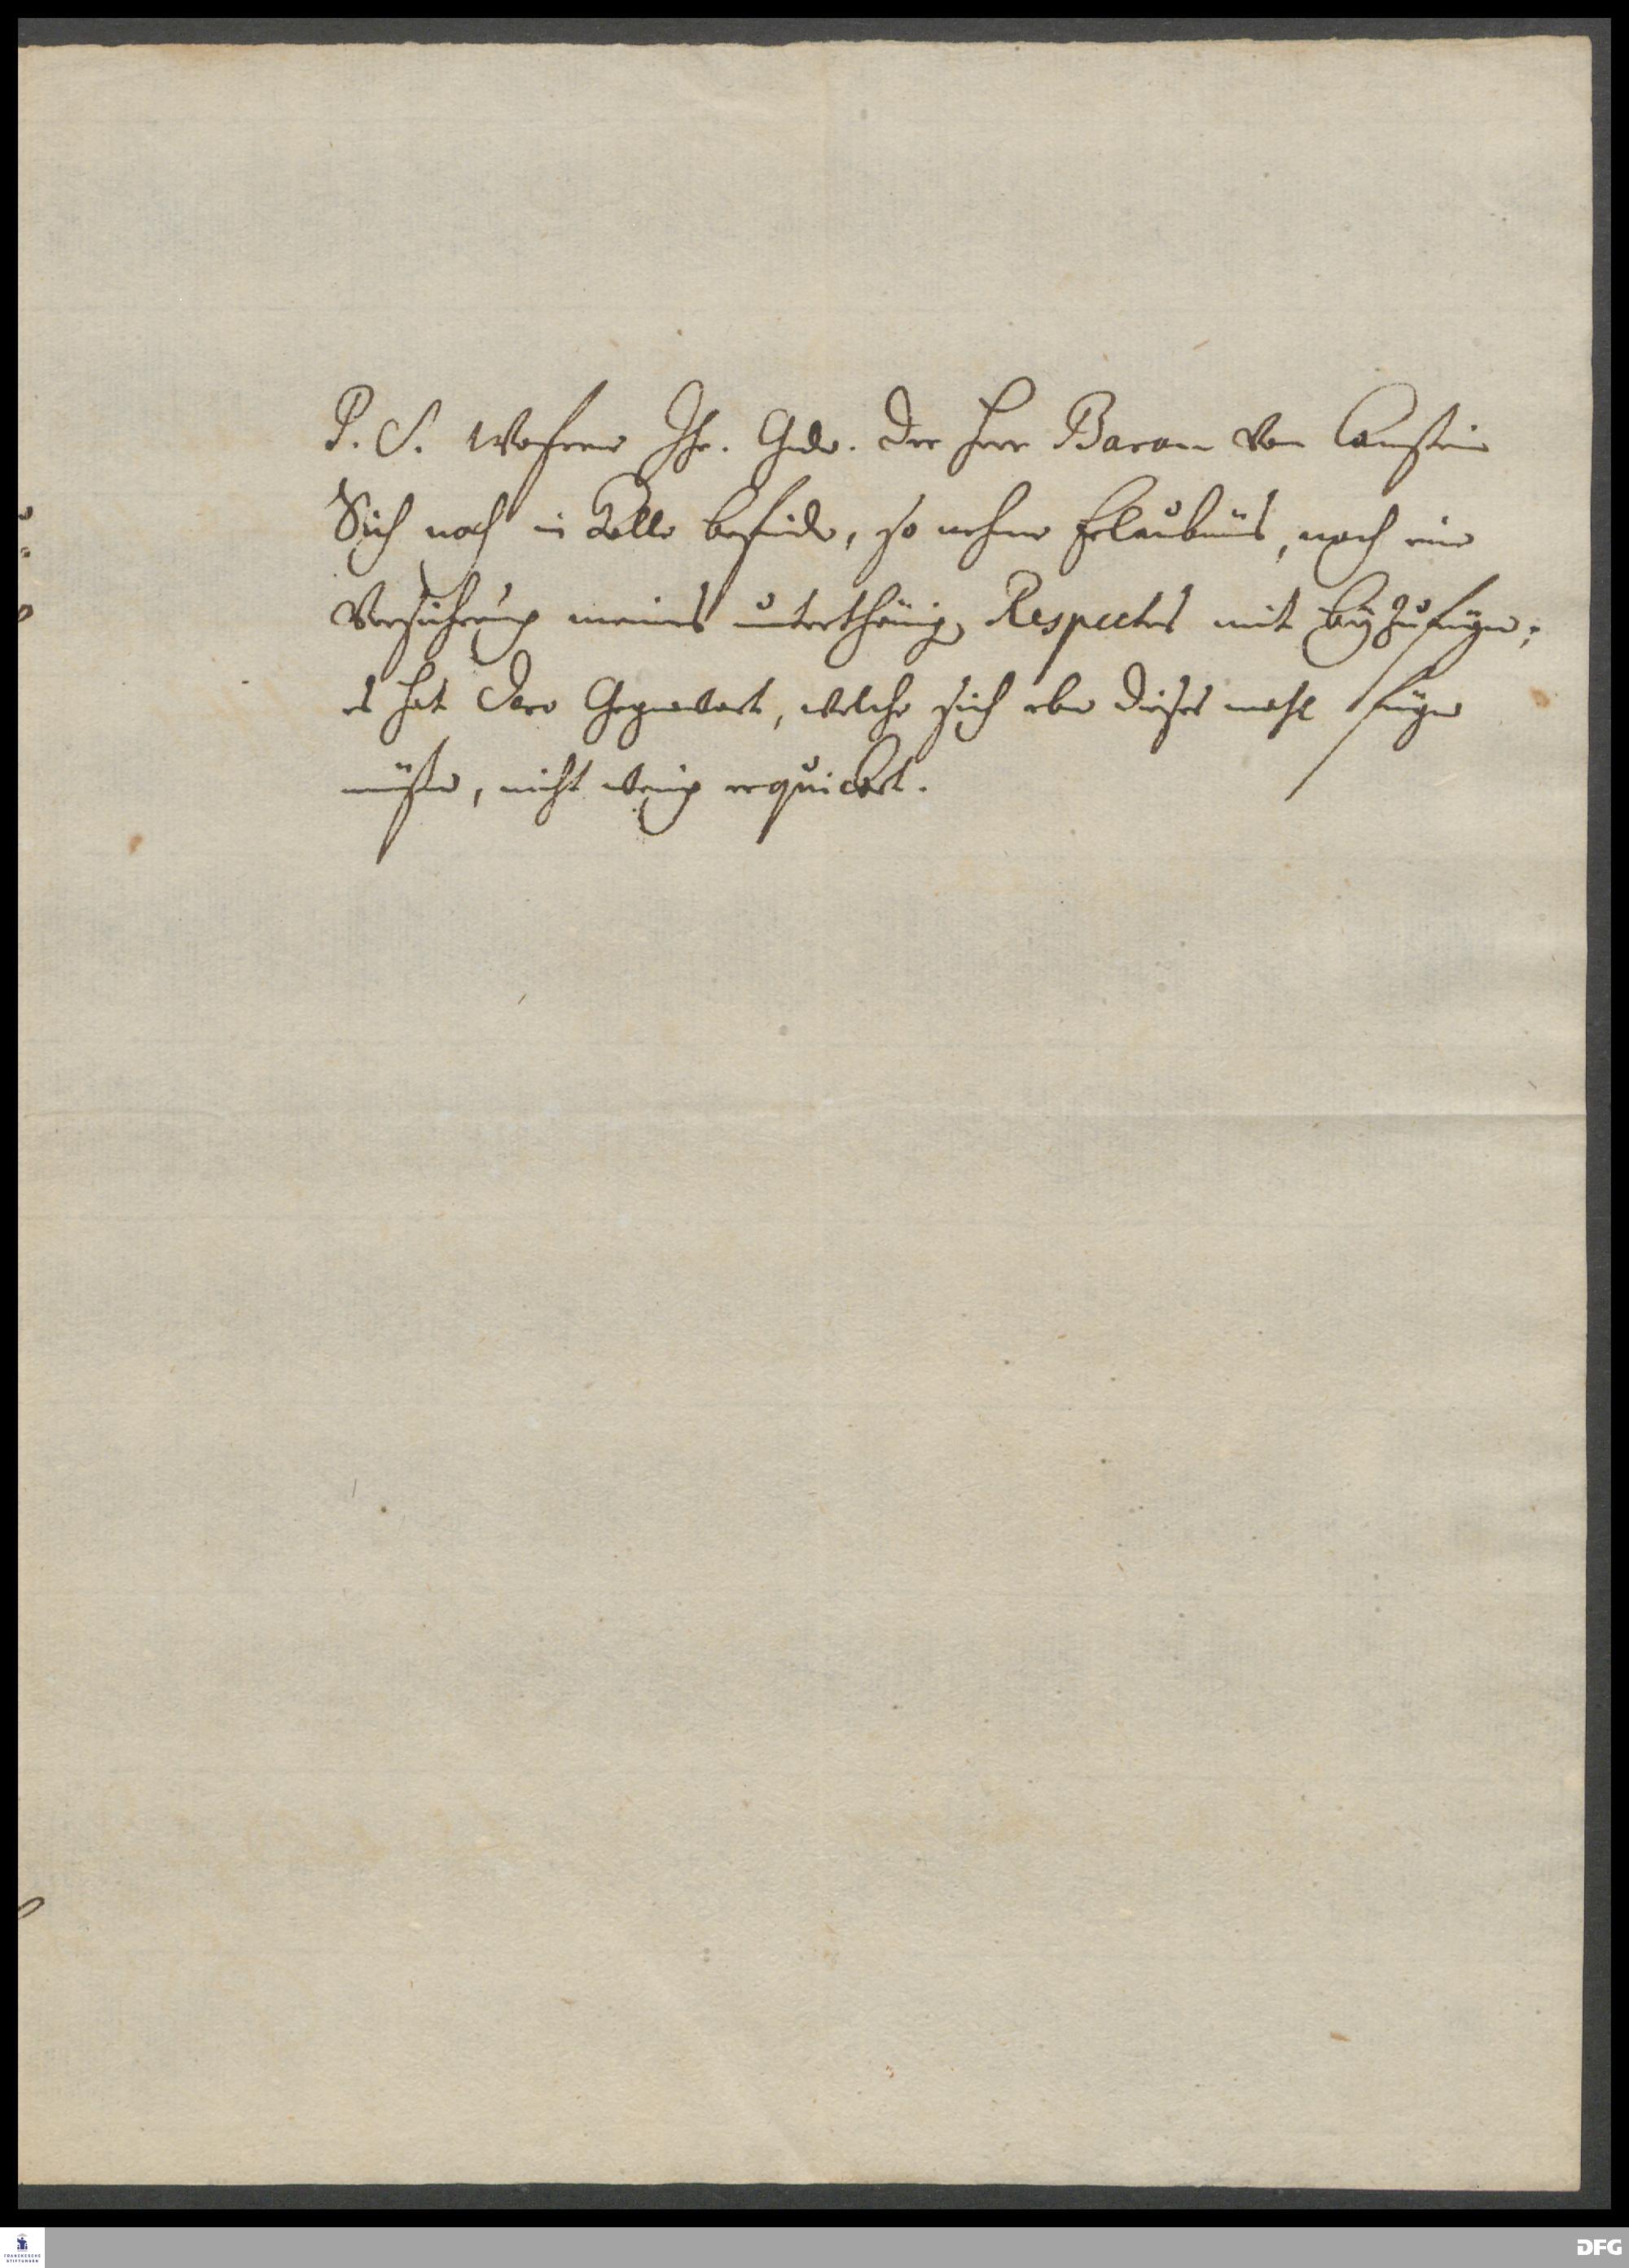 P. S. Wofern Ihr. Gnd. der Herr Baron von Canstein
Sich noch in Halle befinde, so nehme Erlaubnüs, noch eine
Versicherung meines unterthänig. Respectes mit beyzufügen;
es hat Dero Gegenwart, welche sich eben dieses mahl fügen
müßen, nicht wenig erquicket.
FRANCKESCHE
STIFTUNGEN
DFG